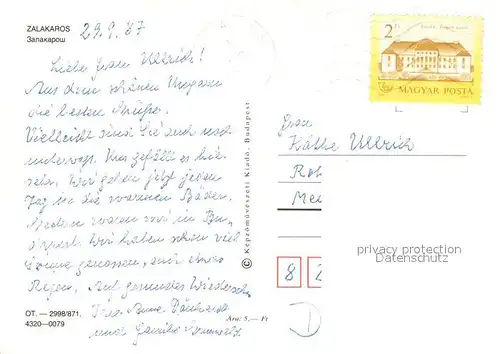 ZALAKAROS
Залакарош
29.9.87
Liebe Frau Ullrich!
Aus dem schönen Ungarn
die besten Grüße.
Vielleicht sind Sie auch noch
unterwegs. Uns gefällt es hier
sehr. Wir gehen jetzt jeden
Tag in die warmen Bäder.
Gestern waren wir in Bu-
dapest. Wir haben schon viel
Sonne genossen, auch etwas
Regen. Auf gesundes Wiedersehn
Ihre Anne
und Familie
OT. — 2998/871.
4320—0079
Ára: 5,— Ft
© Képzőművészeti Kiadó, Budapest
2 Ft
MAGYAR POSTA
Frau
Käthe Ullrich
8
D
privacy protection
Datenschutz